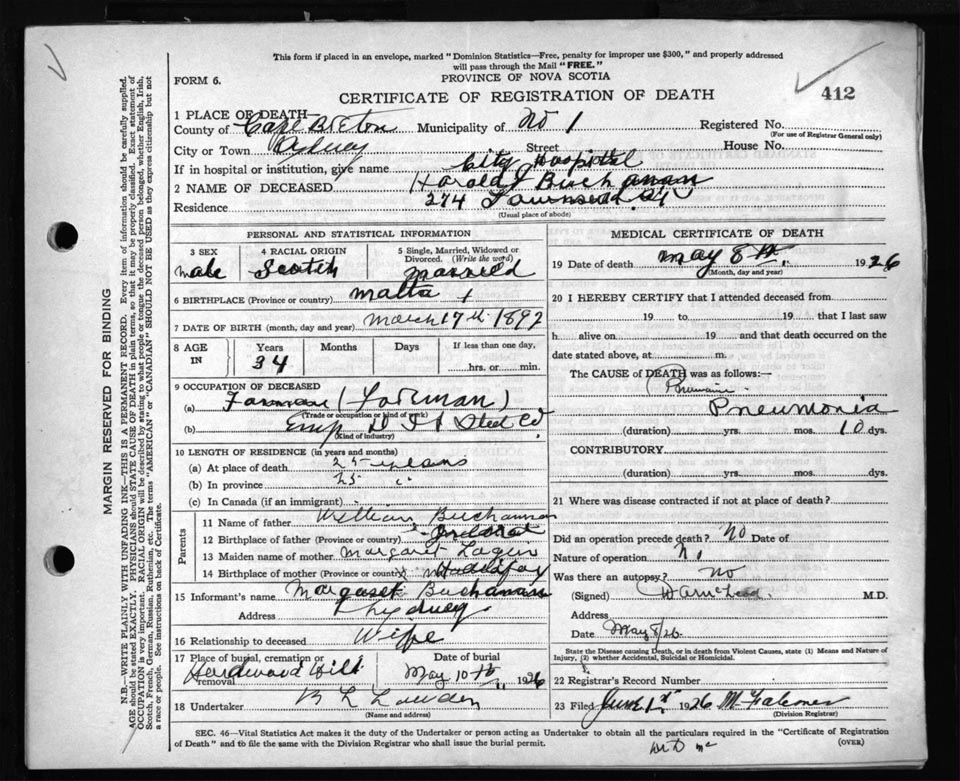 This form if placed in an envelope, marked "Dominion Statistics—Free, penalty for improper use $300," and properly addressed
will pass through the Mail "FREE."
FORM 6.
PROVINCE OF NOVA SCOTIA
CERTIFICATE OF REGISTRATION OF DEATH
412
1 PLACE OF DEATH—
County of Cape Breton Municipality of No 1 Registered No.
(For use of Registrar General only)
City or Town Sydney Street House No.
If in hospital or institution, give name City Hospital
2 NAME OF DECEASED Harold Buchanan
Residence 274 Townsend St
(Usual place of abode)
PERSONAL AND STATISTICAL INFORMATION
3 SEX
Male
4 RACIAL ORIGIN
Scotch
5 Single, Married, Widowed or
Divorced. (Write the word)
married
6 BIRTHPLACE (Province or country) Malta
7 DATE OF BIRTH (month, day and year) March 17th 1892
8 AGE IN
Years
34
Months
Days
If less than one day,
hrs. or min.
9 OCCUPATION OF DECEASED
(a) (Forman)
(Trade or occupation or kind of work)
(b) Emp D I & Steel Co.
(Kind of industry)
10 LENGTH OF RESIDENCE (in years and months)
(a) At place of death 25 years
(b) In province 25 "
(c) In Canada (if an immigrant)
Parents
11 Name of father William Buchannan
12 Birthplace of father (Province or country)
13 Maiden name of mother Margaret
14 Birthplace of mother (Province or country) Halifax
15 Informant's name Margaret Buchanan
Address Sydney
16 Relationship to deceased Wife
17 Place of burial, cremation or removal
Hardwood Hill
Date of burial
May 10th 1926
18 Undertaker
(Name and address)
MEDICAL CERTIFICATE OF DEATH
19 Date of death May 8th 1926
(Month, day and year)
20 I HEREBY CERTIFY that I attended deceased from
19 to 19 that I last saw
h alive on 19 and that death occurred on the
date stated above, at m.
The CAUSE of DEATH was as follows:—
Pneumonia
(duration) yrs. mos. 10 dys.
CONTRIBUTORY
(duration) yrs. mos. dys.
21 Where was disease contracted if not at place of death?
Did an operation precede death? No Date of
Nature of operation No
Was there an autopsy? no
(Signed) M.D.
Address
Date May 8/26
State the Disease causing Death, or in death from Violent Causes, state (1) Means and Nature of
Injury, (2) whether Accidental, Suicidal or Homicidal.
22 Registrar's Record Number
23 Filed June 1st 1926
(Division Registrar)
SEC. 46—Vital Statistics Act makes it the duty of the Undertaker or person acting as Undertaker to obtain all the particulars required in the "Certificate of Registration
of Death" and to file the same with the Division Registrar who shall issue the burial permit.
(OVER)
MARGIN RESERVED FOR BINDING
N.B.—WRITE PLAINLY WITH UNFADING INK—THIS IS A PERMANENT RECORD. Every item of information should be carefully supplied.
AGE should be stated EXACTLY. PHYSICIANS should STATE CAUSE OF DEATH in plain terms, so that it may be properly classified. Exact statement of
OCCUPATION is very important. RACIAL ORIGIN will be described by stating to what people or tongue the deceased person belonged, whether English, Irish,
Scotch, French, German, Russian, Ruthenian, etc. The terms "AMERICAN" or "CANADIAN" SHOULD NOT BE USED as they express citizenship but not
a race or people. See instructions on back of Certificate.